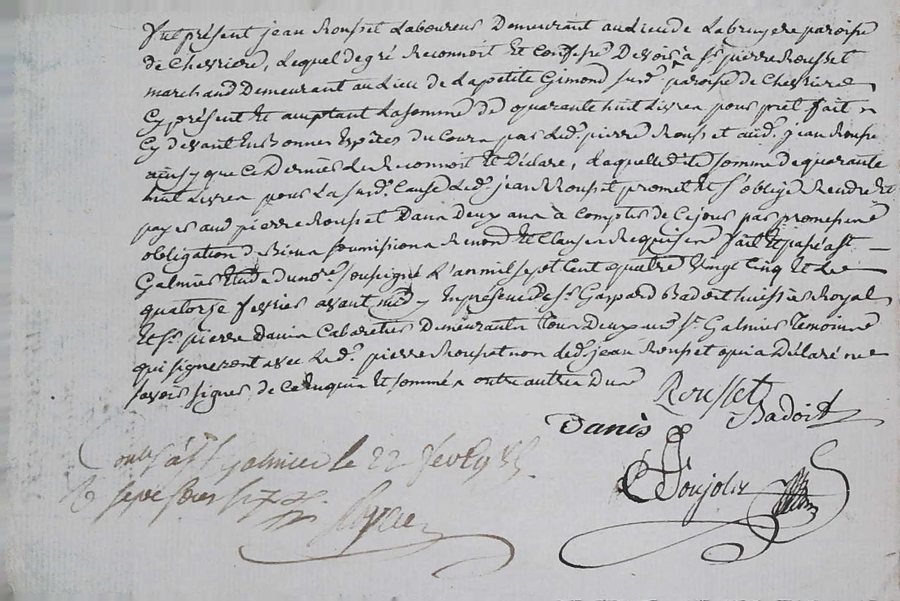 Fut présent jean Rousset Laboureur Demeurant au Lieu de Labruyere paroisse
de Chevriere, Lequel de gré Reconnoit Et Confesse Devoir à Sr. pierre Rousset
marchand Demeurant au Lieu de Lapetite Gimond surd. paroisse de Chevriere
Cy présent Et acceptant La somme de quarante huit Livres pour prêt fait
Cy devant En Bonnes Espèces du Cours par Led. pierre Rousset aud. jean Rousset
ainsy que Ce Dernier Le Reconnoit Et Déclare, Laquelle dite somme de quarante
huit Livres pour La susd. Cause Led. jean Rousset promet Et s'oblige Rendre Et
payer aud pierre Rousset Dans Deux ans à Compter de Ce jour par promesse
obligation de Biens soumissions Renond Et Clauses Requises fait Et passé à St.
Galmier Etude du nore. soussigné L'an mil sept Cent quatre vingt Cinq Et Le
quatorse fevrier avant midy En présence de Sr. Gaspard Badoit huissier Royal
Et Sr. pierre Danis Cabaretier Demeurants tous Deux aud St. Galmier témoins
qui signeront avec Led. pierre Rousset non Led. jean Rousset qui a Déclaré ne
savoir signer de Ce Enquis Et sommé
Rousset
Danis Badoit
Soujolis
à St galmier le 22 fevr 85